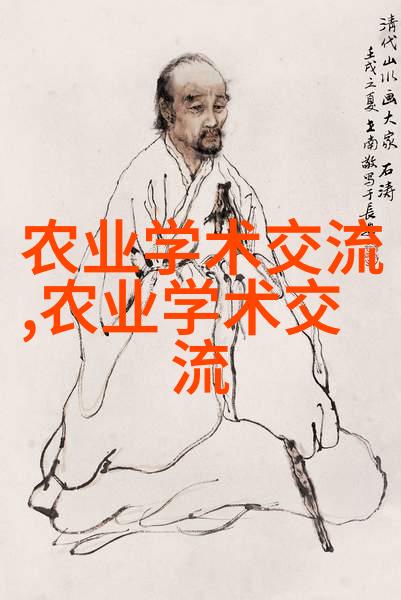 清代山水画大家 石涛
壬戌之夏 立南敬写于長
农业学术交流
,农业学术交
流